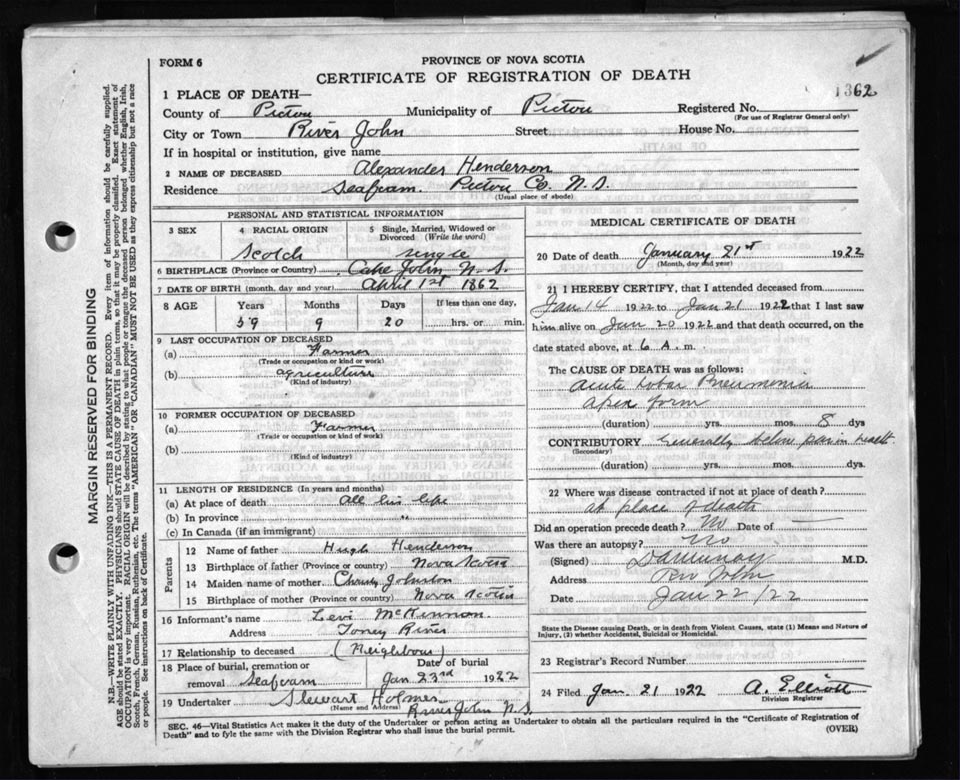 FORM 6
PROVINCE OF NOVA SCOTIA
CERTIFICATE OF REGISTRATION OF DEATH
1362
1 PLACE OF DEATH—
County of Pictou Municipality of Pictou Registered No.
(For use of Registrar General only)
City or Town River John Street House No.
If in hospital or institution, give name
2 NAME OF DECEASED Alexander Henderson
Residence Seafoam Pictou Co. N.S.
(Usual place of abode)
PERSONAL AND STATISTICAL INFORMATION
3 SEX 4 RACIAL ORIGIN 5 Single, Married, Widowed or Divorced (Write the word)
Scotch single
6 BIRTHPLACE (Province or Country) Cape John N.S.
7 DATE OF BIRTH (month, day and year) April 1st 1862
8 AGE Years Months Days If less than one day,
59 9 20 hrs. or min.
9 LAST OCCUPATION OF DECEASED
(a) Farmer
(Trade or occupation or kind of work)
(b) agriculture
(Kind of industry)
10 FORMER OCCUPATION OF DECEASED
(a) Farmer
(Trade or occupation or kind of work)
(b)
(Kind of industry)
11 LENGTH OF RESIDENCE (In years and months)
(a) At place of death All his life
(b) In province "
(c) In Canada (if an immigrant)
Parents
12 Name of father Hugh Henderson
13 Birthplace of father (Province or country) Nova Scotia
14 Maiden name of mother Christy Johnston
15 Birthplace of mother (Province or country) Nova Scotia
16 Informant's name Levi McKinnon
Address Toney River
17 Relationship to deceased (Neighbour)
18 Place of burial, cremation or removal Seafoam Date of burial Jan 23rd 1922
19 Undertaker Stewart Holmes
(Name and Address) River John N.S.
MEDICAL CERTIFICATE OF DEATH
20 Date of death January 21st 1922
(Month, day and year)
21 I HEREBY CERTIFY, that I attended deceased from
Jan 14 1922 to Jan 21 1922 that I last saw
him alive on Jan 20 1922 and that death occurred, on the
date stated above, at 6 A. m.
The CAUSE OF DEATH was as follows:
Acute Lobar Pneumonia
apex form
(duration) yrs. mos. 8 dys
CONTRIBUTORY Generally below par in health
(Secondary)
(duration) yrs. mos. dys.
22 Where was disease contracted if not at place of death?
at place of death
Did an operation precede death? No Date of —
Was there an autopsy? No
(Signed) M.D.
Address Riv John
Date Jan 22/22
State the Disease causing Death, or in death from Violent Causes, state (1) Means and Nature of Injury, (2) whether Accidental, Suicidal or Homicidal.
23 Registrar's Record Number
24 Filed Jan. 21 1922 A. Elliott
Division Registrar
SEC. 46—Vital Statistics Act makes it the duty of the Undertaker or person acting as Undertaker to obtain all the particulars required in the "Certificate of Registration of
Death" and to fyle the same with the Division Registrar who shall issue the burial permit. (OVER)
MARGIN RESERVED FOR BINDING
N.B.—WRITE PLAINLY WITH UNFADING INK—THIS IS A PERMANENT RECORD. Every item of information should be carefully supplied.
AGE should be stated EXACTLY. PHYSICIANS should STATE CAUSE OF DEATH in plain terms, so that it may be properly classified. Exact statement of
OCCUPATION is very important. RACIAL ORIGIN will be described by stating to what people or tongue the deceased person belonged whether English, Irish,
Scotch, French, German, Russian, Ruthenian, etc. The terms "AMERICAN" OR "CANADIAN" MUST NOT BE USED as they express citizenship but not a race
or people. See instructions on back of Certificate.